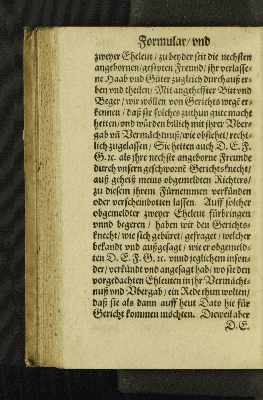 Formular/vnd
zweyer Eheleut/zu beyder seit die nechsten
angebornen/gesipten Freund/jhr verlasse-
ne Haab vnd Güter zugleich durchauß er-
ben vnd theilen/Mit angeheffter Bitt vnd
Beger/wir wöllen von Gerichts wegē er-
kennen/daß sie solches zuthun gute macht
hetten/vnd würden billich mit jhrer Vber-
gab vñ Vermächtnuß/wie obstehet/recht-
lich zugelassen/Sie hetten auch D. E. F.
G. ꝛc. als jhre nechste angeborne Freunde
durch vnsern geschworne Gerichtsknecht/
auß geheiß meins obgemeldten Richters/
zu diesem jhrem Fürnemmen verkünden
oder verscheinbotten lassen. Auff solcher
obgemeldter zweyer Eheleut fürbringen
vnnd begeren/haben wir den Gerichts-
knecht/wie sich gebüret/gefraget/welcher
bekandt vnd außgesagt/wie er obgemeld-
ten D. E. F. G. ꝛc. vnnd jeglichem inson-
der/verkündt vnd angesagt hab/wo sie den
vorgedachten Ehleuten in jhr Vermächt-
nuß vnd Vbergab/ein Rede thun wolten/
daß sie als dann auff heut Dato hie für
Gericht kommen möchten. Dieweil aber
D. E.